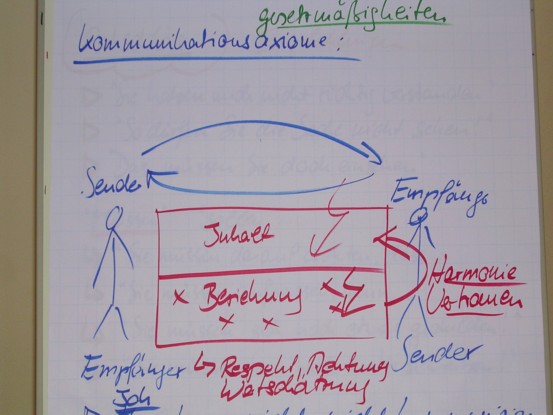 gesetzmäßigkeiten
Kommunikationsaxiome:
Sender
Empfänge
Inhalt
Harmonie
Vertrauen
Beziehung
Sender
Empfänger
Ich
Respekt, Achtung
Wertschätzung